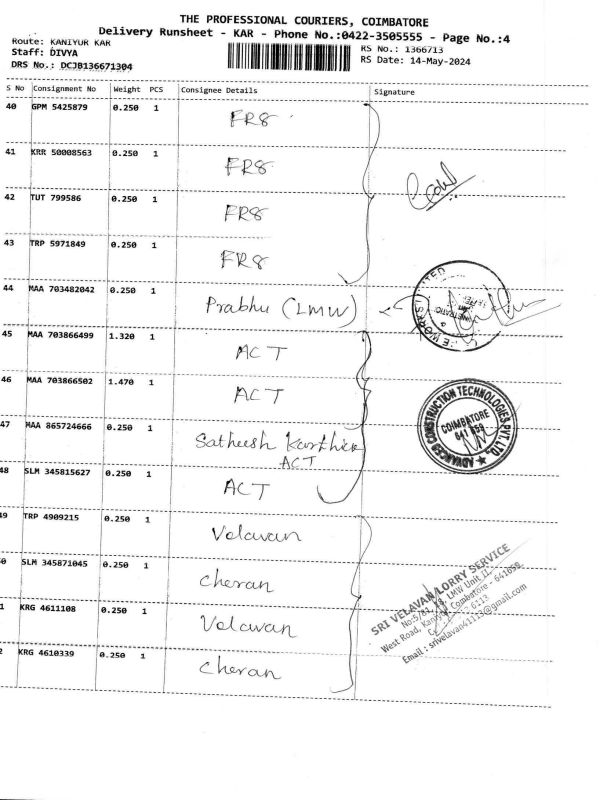 THE PROFESSIONAL COURIERS, COIMBATORE
Delivery Runsheet - KAR - Phone No.:0422-3505555 - Page No.:4
Route: KANIYUR KAR
Staff: DIVYA
DRS No.: DCJB136671304
RS No.: 1366713
RS Date: 14-May-2024
S No Consignment No Weight PCS Consignee Details Signature
40 GPM 5425879 0.250 1 FR8
41 KRR 50008563 0.250 1 FR8
42 TUT 799586 0.250 1 FR8
43 TRP 5971849 0.250 1 FR8
44 MAA 703482042 0.250 1 Prabhu (LMW)
45 MAA 703866499 1.320 1 ACT
46 MAA 703866502 1.470 1 ACT
47 MAA 865724666 0.250 1 Satheesh Karthick
ACT
48 SLM 345815627 0.250 1 ACT
49 TRP 4909215 0.250 1 Velavan
0 SLM 345871045 0.250 1 Cheran
1 KRG 4611108 0.250 1 Velavan
2 KRG 4610339 0.250 1 Cheran
ADVANCED CONSTRUCTION TECHNOLOGIES PVT. LTD.
COIMBATORE
641 659
SRI VELAVAN LORRY SERVICE
LMW Unit II
West Road, Coimbatore - 641658
6113
Email : srivelavan41113@gmail.com